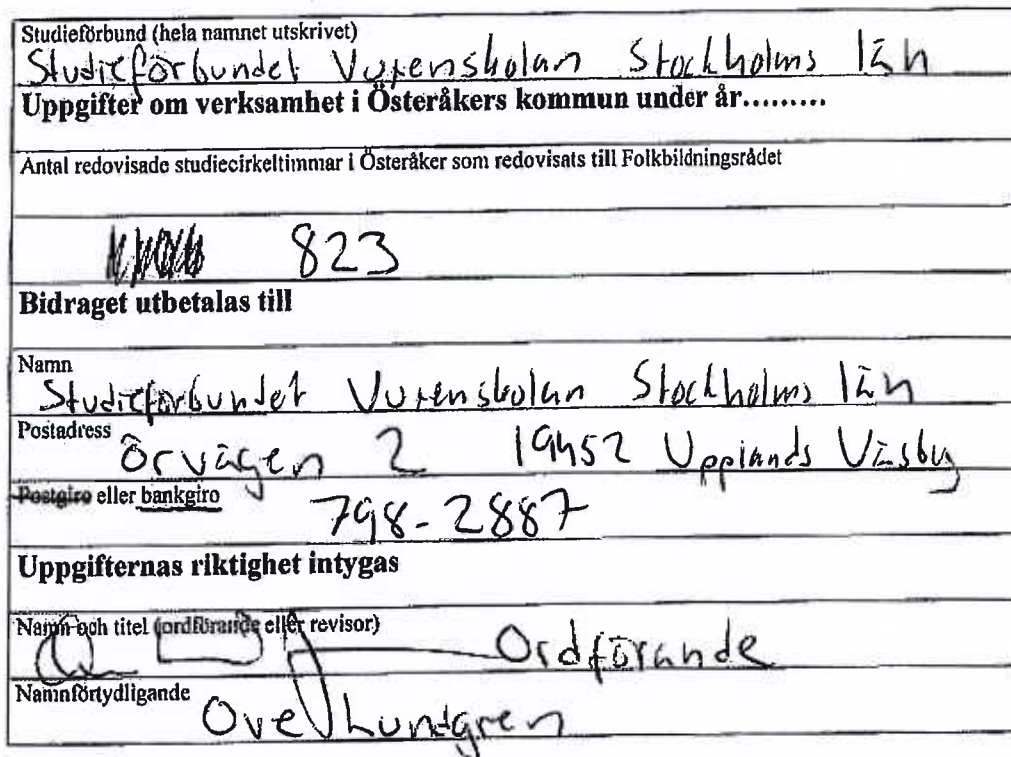 Studieförbund (hela namnet utskrivet)
Studieförbundet Vuxenskolan Stockholms län
Uppgifter om verksamhet i Österåkers kommun under år.........
Antal redovisade studiecirkeltimmar i Österåker som redovisats till Folkbildningsrådet
823
Bidraget utbetalas till
Namn
Studieförbundet Vuxenskolan Stockholms län
Postadress Örvägen 2 19452 Upplands Väsby
Postgiro eller bankgiro 798-2887
Uppgifternas riktighet intygas
Namn och titel (ordförande eller revisor)
Ordförande
Namnförtydligande Ove Lundgren